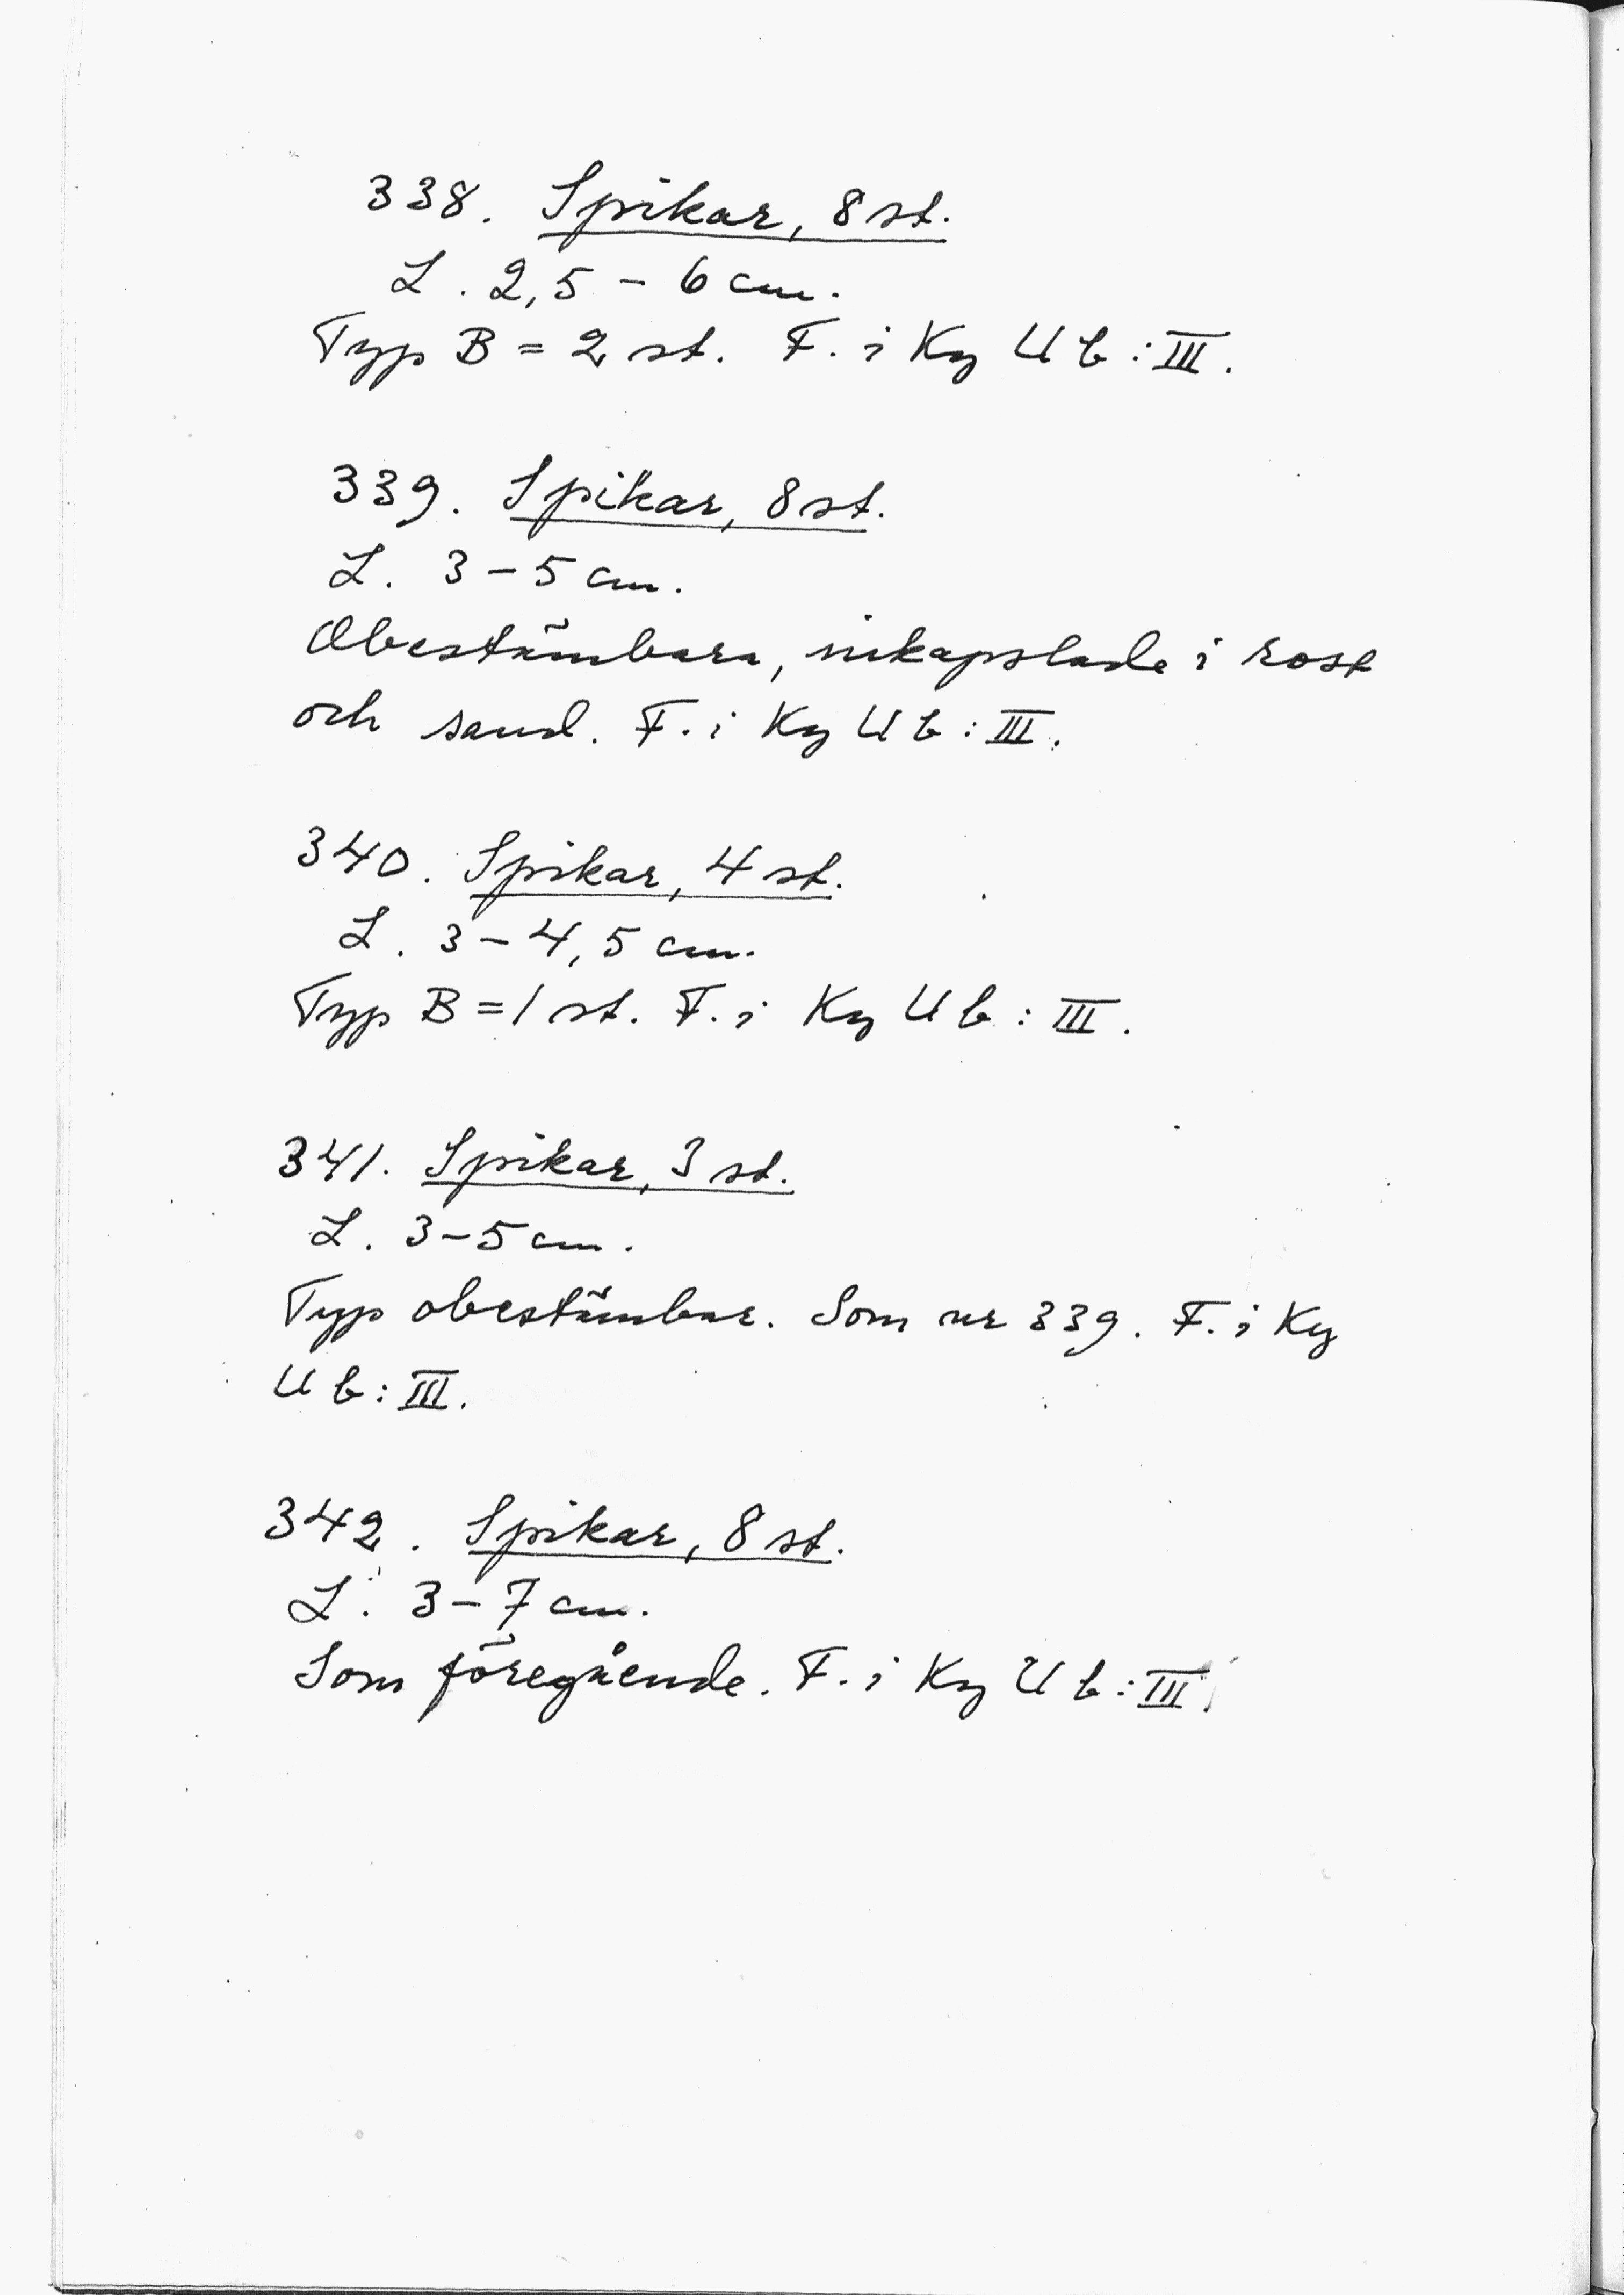 338. Spikar, 8 st.
L. 2,5 - 6 cm.
Typ B = 2 st. F. i Ky U b : III.
339. Spikar, 8 st.
L. 3 - 5 cm.
Obestämbara, inkapslade i rost
och sand. F. i Ky U b : III.
340. Spikar, 4 st.
L. 3 - 4,5 cm.
Typ B = 1 st. F. i Ky U b : III.
341. Spikar, 3 st.
L. 3 - 5 cm.
Typ obestämbar. Som nr 339. F. i Ky
U b : III.
342. Spikar, 8 st.
L. 3 - 7 cm.
Som föregående. F. i Ky U b : III.